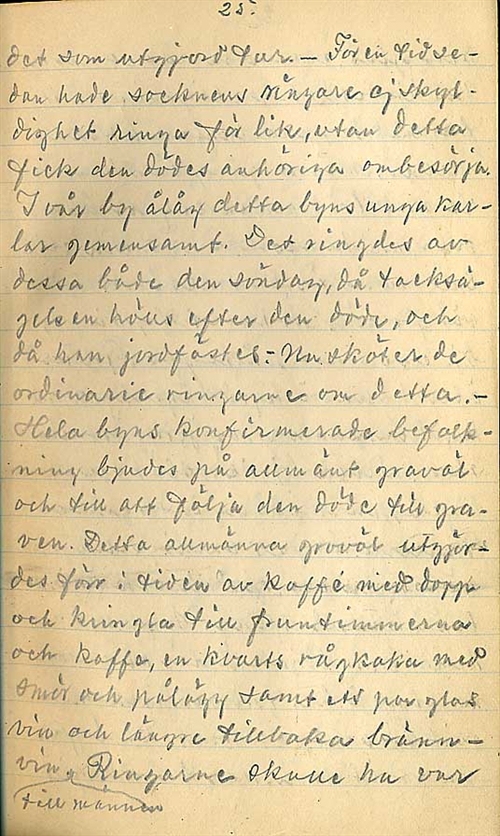 25.
det som utgjord tur. — För en tid se-
dan hade socknens ringare ej skyl-
dighet ringa för lik, utan detta
fick den dödes anhöriga ombesörja.
I vår by ålåg detta byns unga kar-
lar gemensamt. Det ringdes av
dessa både den söndag, då tacksä-
gelsen hölls efter den döde, och
då han jordfästes. – Nu sköter de
ordinarie ringarne om detta. –
Hela byns konfirmerade befolk-
ning bjudes på allmänt gravöl
och till att följa den döde till gra-
ven. Detta allmänna gravöl utgjor-
des förr i tiden av kaffe med dopp
och kringla till fruntimmerna
och kaffe, en kvarts rågkaka med
smör och pålägg samt ett par glas
vin och längre tillbaka bränn-
vin. Ringarne skulle ha var
till männen